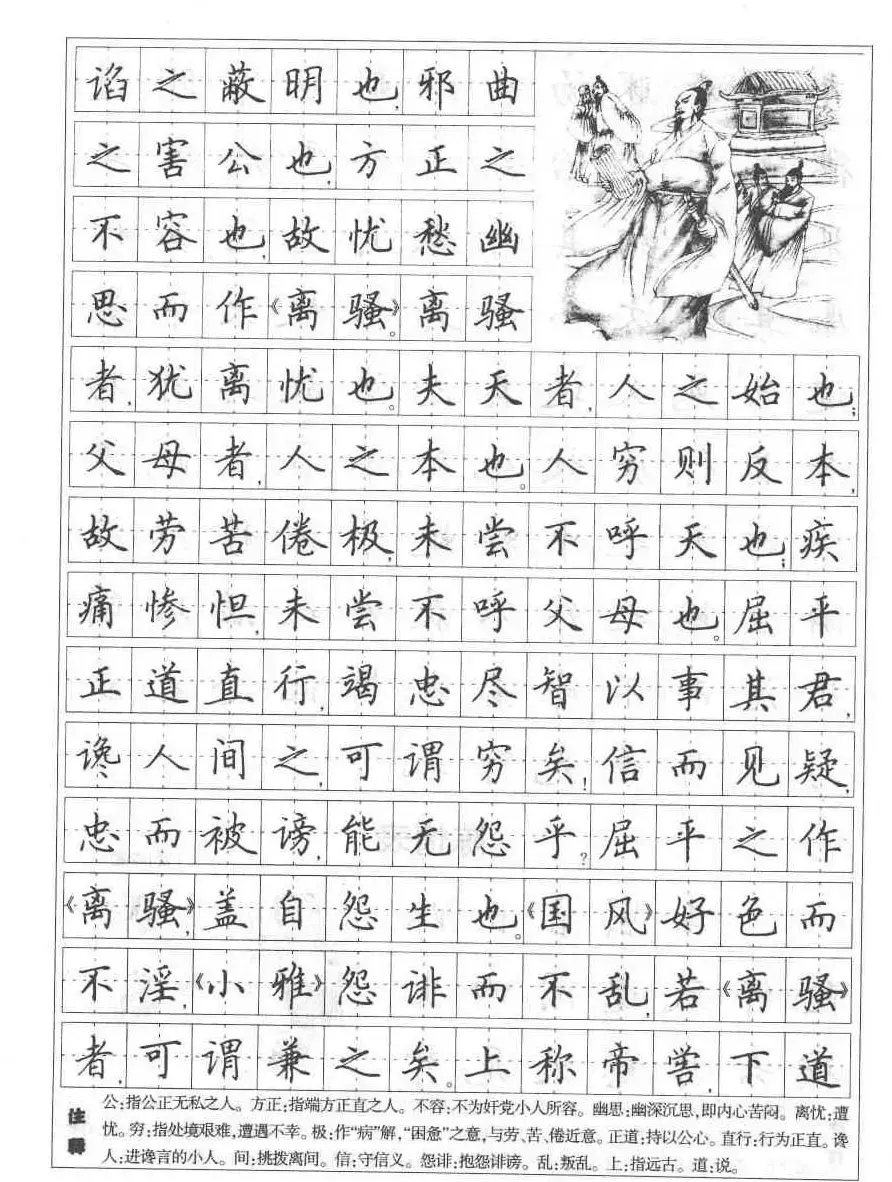 谄之蔽明也,邪曲
之害公也,方正之
不容也,故忧愁幽
思而作《离骚》。离骚
者,犹离忧也。夫天者,人之始也;
父母者,人之本也。人穷则反本,
故劳苦倦极,未尝不呼天也;疾
痛惨怛,未尝不呼父母也。屈平
正道直行,竭忠尽智以事其君,
谗人间之,可谓穷矣!信而见疑,
忠而被谤,能无怨乎?屈平之作
《离骚》盖自怨生也。《国风》好色而
不淫,《小雅》怨诽而不乱,若《离骚》
者,可谓兼之矣。上称帝喾,下道
注释
公:指公正无私之人。方正:指端方正直之人。不容:不为奸党小人所容。幽思:幽深沉思,即内心苦闷。离忧:遭
忧。穷:指处境艰难,遭遇不幸。极:作“病”解,“困惫”之意,与劳、苦、倦近意。正道:持以公心。直行:行为正直。谗
人:进谗言的小人。间:挑拨离间。信:守信义。怨诽:抱怨诽谤。乱:叛乱。上:指远古。道:说。